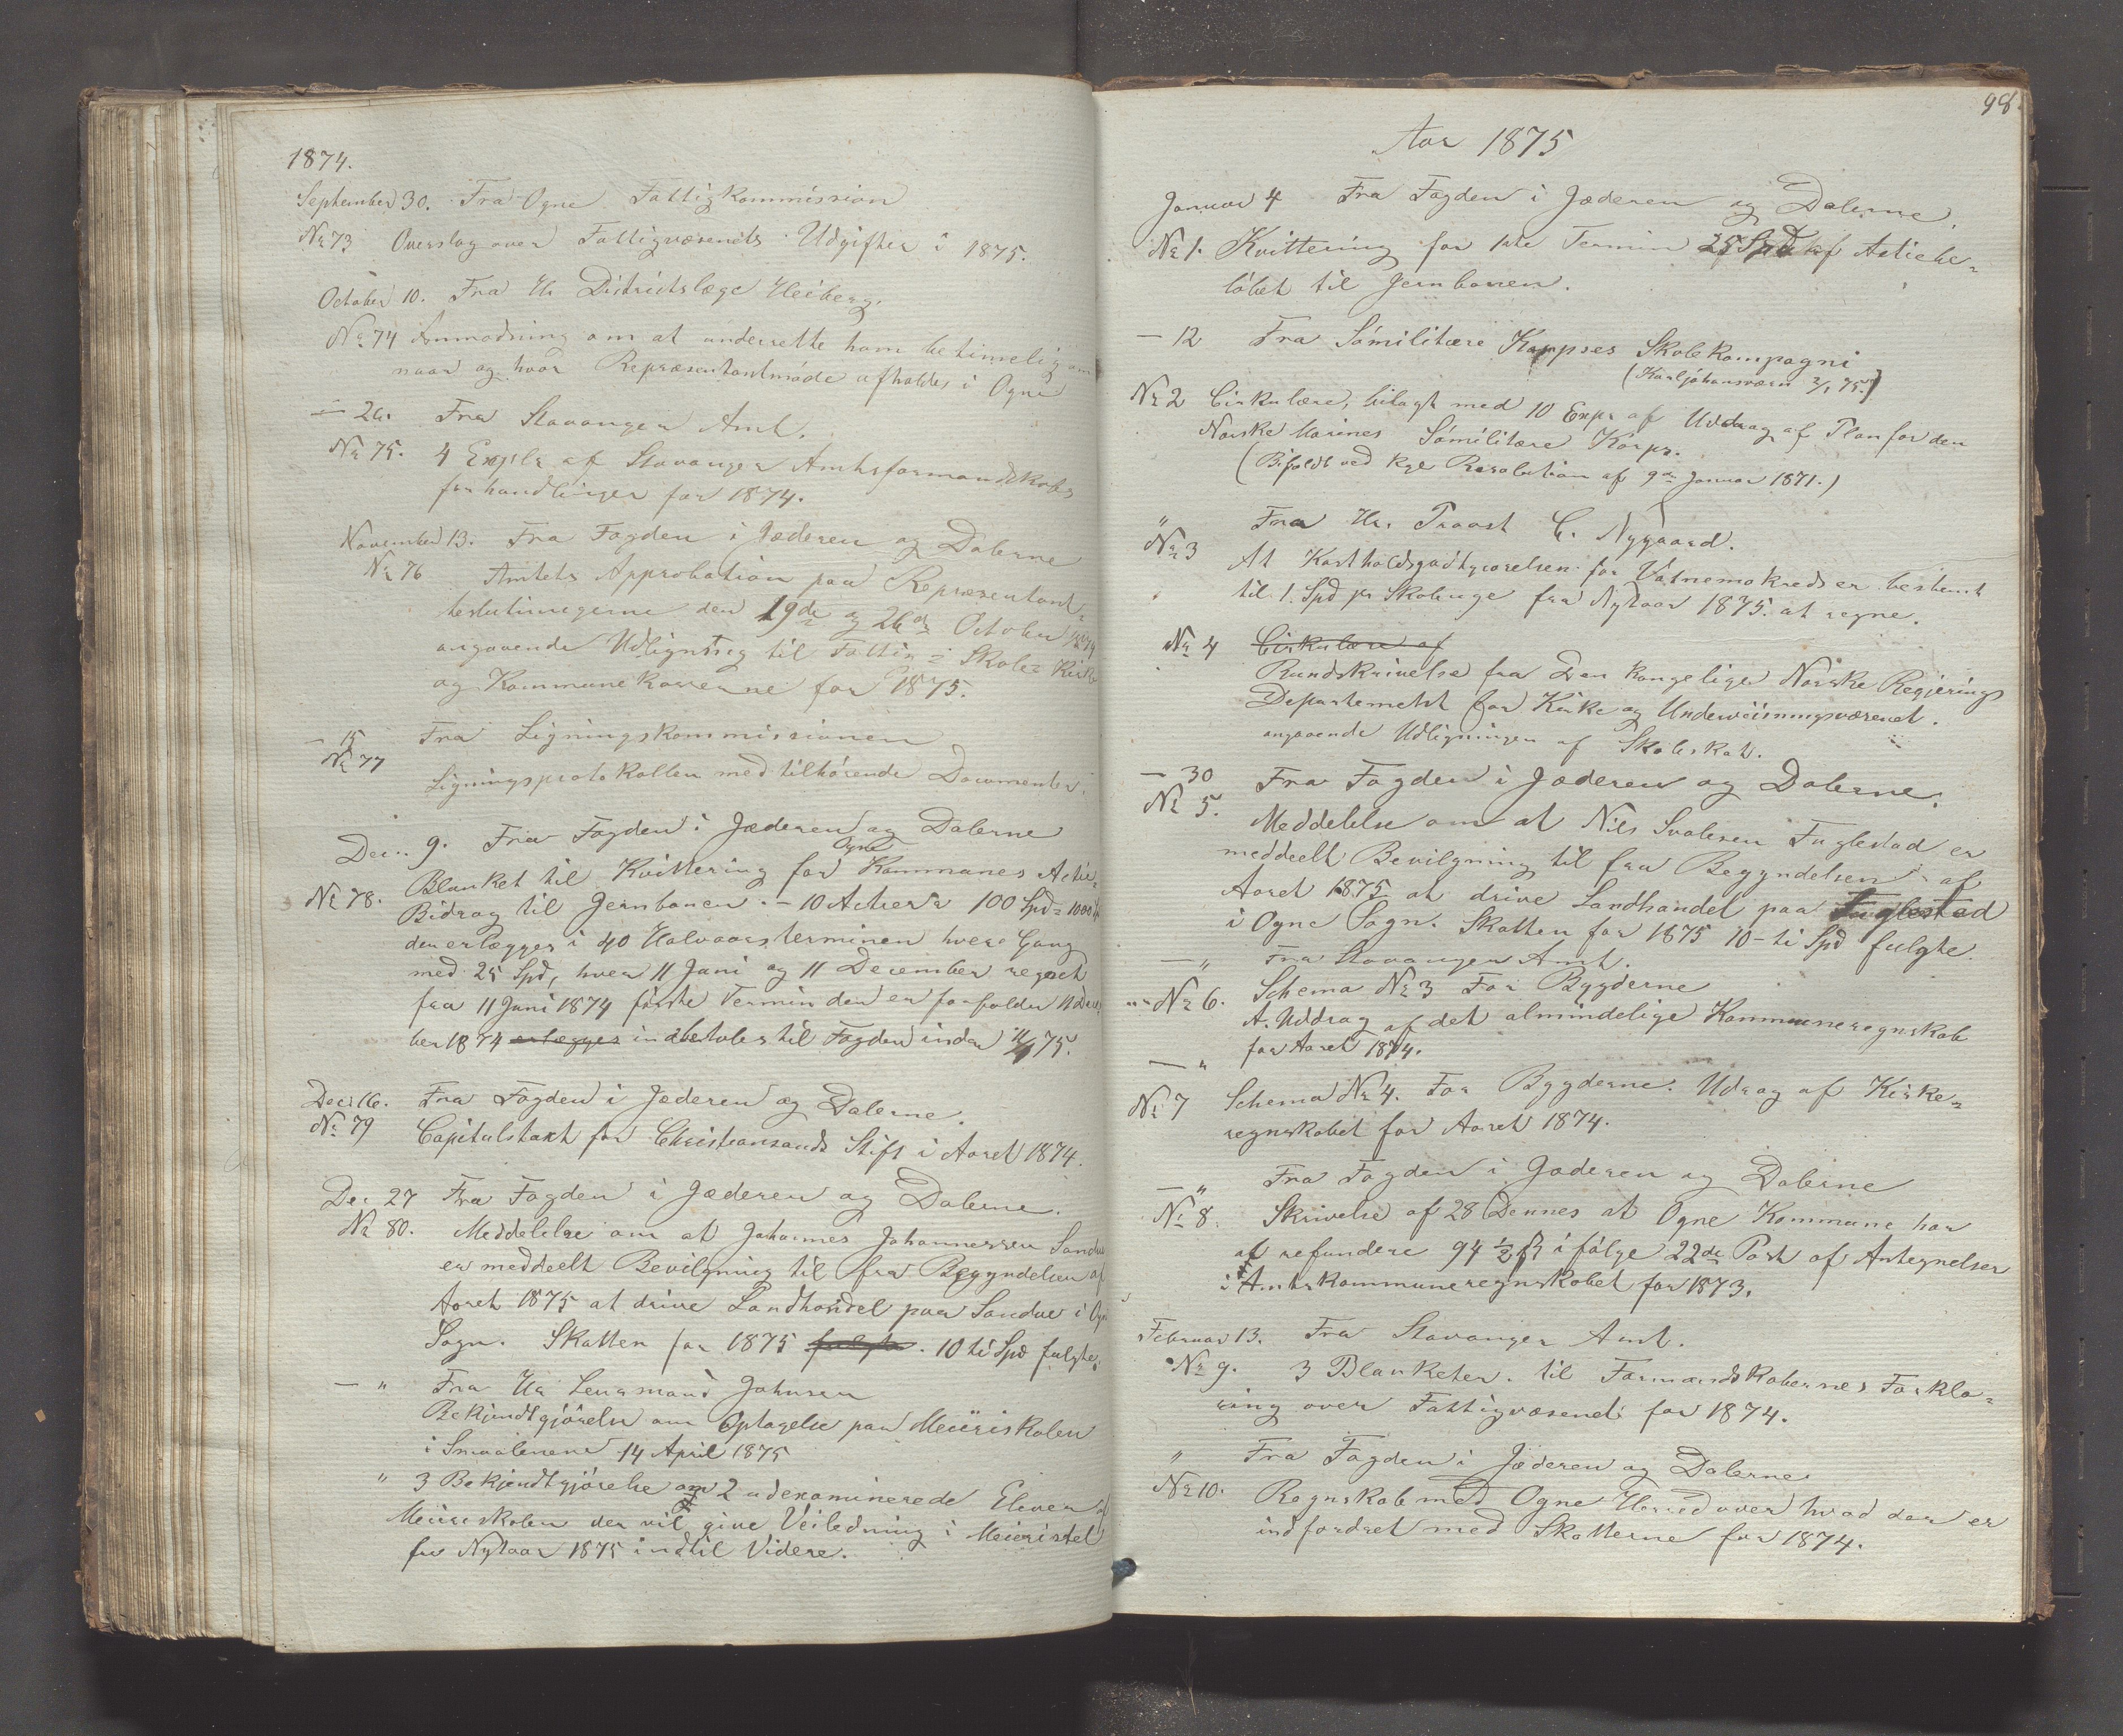 1874.
September 30. Fra Ogne Fattigkommission
No 73 Overslag over Fattigvæsenets Udgifter i 1875.
October 10. Fra Hr Districtslæge Heiberg.
No 74 Anmodning om at underrette ham betimelig om
naar og hvor Repræsentantmøde afholdes i Ogne
— 26. Fra Stavanger Amt.
No 75. 4 Explr af Stavanger Amtsformandskabs
forhandlinger for 1874.
November 13. Fra Fogden i Jæderen og Dalerne
No 76 Amtets Approbation paa Repræsentant-
beslutningerne den 19de og 26de October 1874
angaaende Udligning til Fattig- Skole- Kirke
og Kommunekasserne for 1875.
— 15 Fra Ligningskommissionen
No 77
Ligningsprotokollen med tilhørende Documenter.
Dec. 9. Fra Fogden i Jæderen og Dalerne
Ogne
Blanket til Kvittering for Kommunes Actie-
No 78. Bidrag til Jernbanen. — 10 Actier a 100 Spd = 1000
den erlægges i 40 Halvaarsterminen hver Gang
med 25 Spd, hver 11 Juni og 11 December regnet
fra 11 Juni 1874 første Termin der er forfalden 11 Decem
ber 1874 erlægges indbetales til Fogden inden 75.
Decr 16. Fra Fogden i Jæderen og Dalerne.
No 79 Capitulstaxt for Christiansands Stift i Aaret 1874.
Dec 27 Fra Fogden i Jæderen og Dalerne.
No 80. Meddelelse om at Johannes Johannessen Sandve
er meddeelt Bevilgning til fra Begyndelsen af
Aaret 1875 at drive Landhandel paa Sandve i Ogne
Sogn. Skatten for 1875 fulgte. 10 ti Spd fulgte.
— " Fra Hr Lensmand Johnsen
Bekjendtgjørelse om Optagelse paa Meieriskolen
i Smaalenene 14 April 1875
" 3 Bekjendtgjørelse om 2 udexaminerede Elever af
Meieriskolen der vil give Veiledning i Meieristel
fra Nytaar 1875 indtil Videre.
98.
Aar 1875
Januar 4 Fra Fogden i Jæderen og Dalerne.
No 1. Kvittering for 1ste Termin 25 Spd af Actiebe-
løbet til Jernbanen.
— 12 Fra Sømilitære Korpses Skolekompagni
(Karljohansværn 2/1 75.)
No 2 Cirkulære, bilagt med 10 Expr af Uddrag af Plan for den
Norske Marines Sømilitære Korps.
(Bifaldt ved Kgl Resolution af 9de Januar 1871.)
" Fra Hr. Provst C. Nygaard.
No 3 At Kostholdsgodtgjørelsen for Vatnemokreds er bestemt
til 1. Spd pr Skoleuge fra Nytaar 1875. at regne.
No 4 Cirkulære af
Rundskrivelse fra Den kongelige Norske Regjerings
Departemetet for Kirke og Underviisningsvæsenet.
angaaende Udligningen af Skoleskat.
— 30 Fra Fogden i Jæderen og Dalerne.
No 5. Meddelelse om at Nils Svalesen Fuglestad er
meddeelt Bevilgning til fra Begyndelsen af
Aaret 1875 at drive Landhandel paa Fuglestad
i Ogne Sogn. Skatten for 1875 10 - ti Spd fulgte.
— " Fra Stavanger Amt.
" - No 6. Schema No 3 For Bygderne
A. Uddrag af det almindelige Kommuneregnskab
for Aaret 1874.
— "
No 7 Schema No 4. For Bygderne. Udrag af Kirke-
regnskabet for Aaret 1874.
— " Fra Fogden i Jæderen og Dalerne
No 8. Skrivelse af 28 Dennes at Ogne Kommune har
at refundere 94 ½ ß ifølge 22de Post af Antegnelser
i Amtskommuneregnskabet for 1873.
Februar 13. Fra Stavanger Amt.
No 9. 3 Blanketer til Formandskabernes Forkla-
ring over Fattigvæsenet for 1874.
" Fra Fogden i Jæderen og Dalerne
No 10. Regnskab med Ogne Herred over hvad der er
indfordret med Skatterne for 1874.